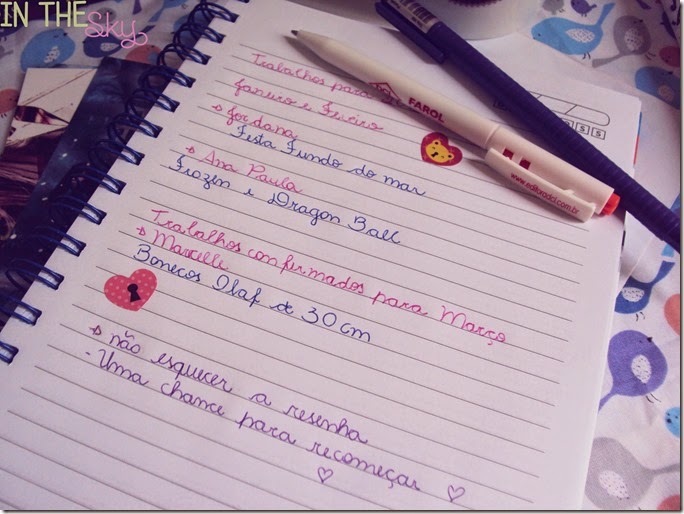 IN THE
Sky
Trabalhos para
Janeiro e Feveiro
Jordana
Festa Fundo do mar
Ana Paula
Frozen e Dragon Ball
Trabalhos confirmados para Março
Marcelle
Bonecos Olaf de 30 cm
não esquecer a resenha
- Uma chance para recomeçar
FAROL
www.editoradcl.com.br
S S